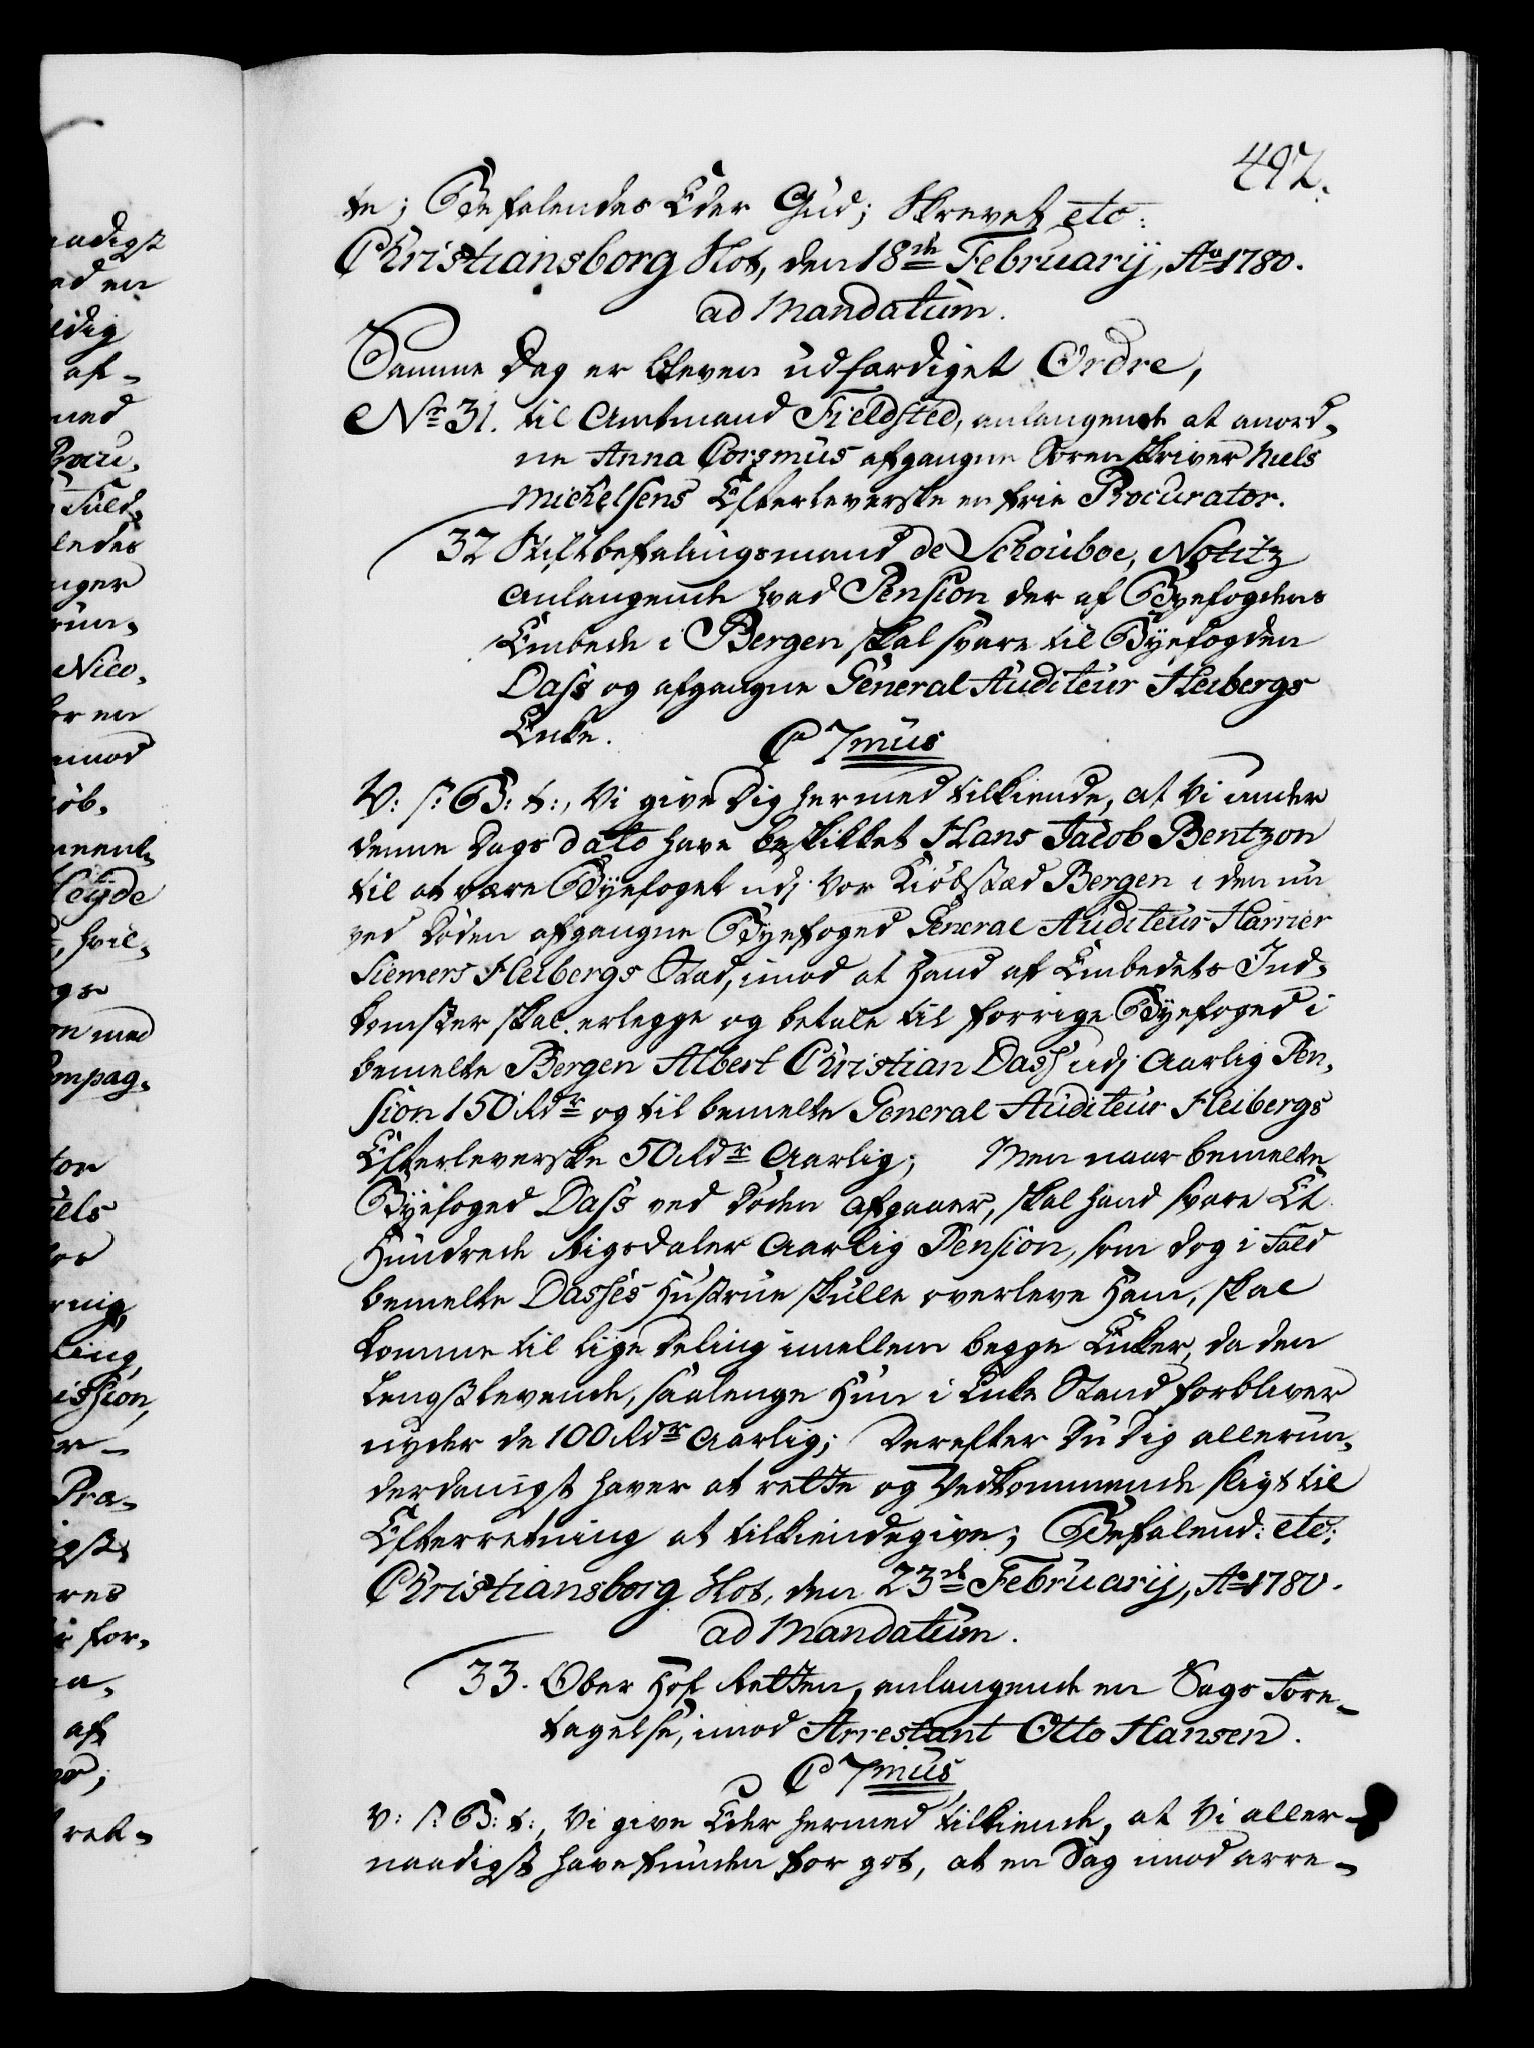 492.
te; Befalendes Eder Gud; Skrevet etc:
Christiansborg Slot, den 18de Februarij, Ao 1780.
ad Mandatum.
Samme Dag er bleven udfærdiget Ordre,
No 31. til Amtmand Fieldsted, anlangende at anord-
ne Anna Corsmus afgangne Sorenskriver Niels
Michelsens Efterleverske en frie Procurator.
32 Stiftbefalingsmand de Schouboe, Notitz
anlangende hvad Pension der af Byefogdens
Embede i Bergen skal svare til Byefogden
Dass og afgangne General Auditeur Heibergs
Enke.
C 7mus
V: S: G: t:, Vi give Dig hermed tilkiende, at Vi under
denne Dags dato have beskikket Hans Jacob Bentzon
til at være Byefoget udj Vor Kiøbstæd Bergen i den nu
ved Døden afgangne Byefoged General Auditeur Harrier
Siemers Heibergs Stad, imod at Hand af Embedets Ind-
komster skal erlegge og betale til forrige Byefoged i
bemelte Bergen Albert Christian Dass udj Aarlig Pen-
sion 150 Rdr og til bemelte General Auditeur Heibergs
Efterleverske 50 Rdr Aarlig; Men naar bemelte
Byefoged Dass ved Døden afgaaer, skal Hand svare Et
Hundrede Rigsdaler Aarlig Pension, som dog i Fald
bemelte Dasses Hustrue skulle overleve Ham, skal
komme til lige Deling imellem begge Enker, da den
Lengstlevende, saalenge Hun i Enke Stand forbliver
nyder de 100 Rdr Aarlig; Derefter Du Dig allerun-
derdanigst haver at rette og Vedkommende sligt til
Efterretning at tilkiendegive; Befalend: etc:
Christiansborg Slot, den 23de Februarij, Ao 1780.
ad Mandatum.
33. Ober Hof Retten, anlangende en Sags Fore-
tagelse, imod Arrestant Otto Hansen.
C 7mus
V: S: G: t:, Vi give Eder hermed tilkiende, at Vi aller-
naadigst have funden for got, at en Sag imod arre-